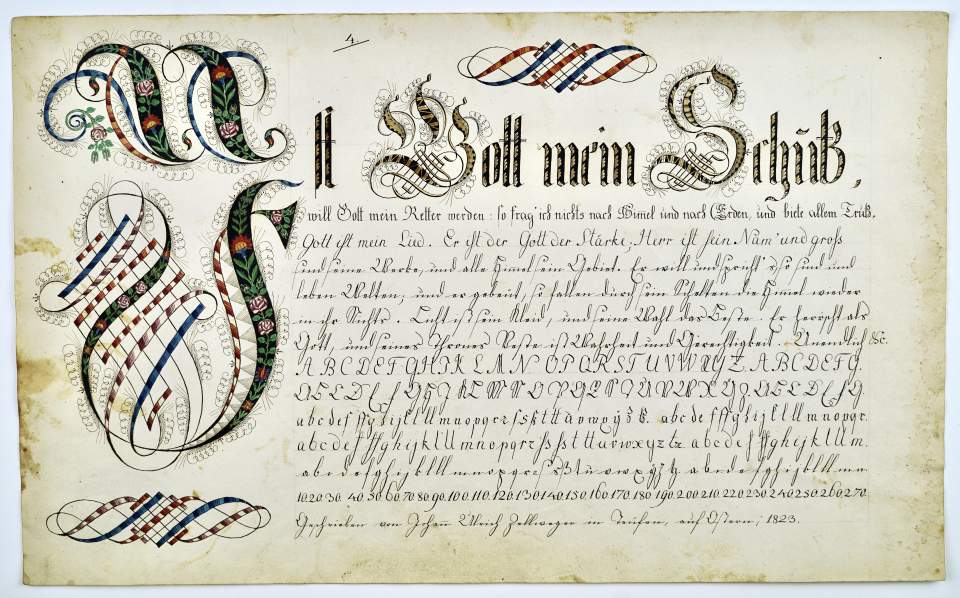 4
Ist Gott mein Schutz,
will Gott mein Retter werden: so frag' ich nichts nach Himel und nach Erden, und biete allem Trutz.
Gott ist mein Lied. Er ist der Gott der Stärke, Herr ist sein Nam' und gross
sind seine Werke, und alle Himel sein Gebiet. Er will und spricht's; so sind und
leben Welten; und er gebeut, so fallen durch sein Schelten die Himel wieder
in ihr Nichts. Licht ist sein Kleid, und seine Wahl das Beste. Er herrscht als
Gott, und seines Thrones Veste ist Wahrheit und Gerechtigkeit. Unendlich &c.
A B C D E F G H I K L M N O P Q R S T U V W X Y Z. A B C D E F G.
A B C D E F G H J K L M N O P Q R S T U V W X Y Z. A B C D E F G.
a b c d e f ff g h i j k l ll m n o p q r r s ſ s k t tt u v w x y z ß. a b c d e f ff g h i j k l ll m n o p q r.
a b c d e f ff g h i j k l ll m n o p q r r s ſ s ß t tt u v w x y z tz a b c d e f ff g h i j k l ll m.
a b c d e f g h i j k l ll m n o p q r s ſ s ß t u v w x y z tz a b c d e f g h i j k l ll m n
10. 20. 30. 40. 50. 60. 70. 80. 90. 100. 110. 120. 130. 140. 150. 160. 170. 180. 190. 200. 210. 220. 230. 240. 250. 260. 270.
Geschrieben von Johan Ulrich Zellweger in Teufen, auf Ostern, 1823.